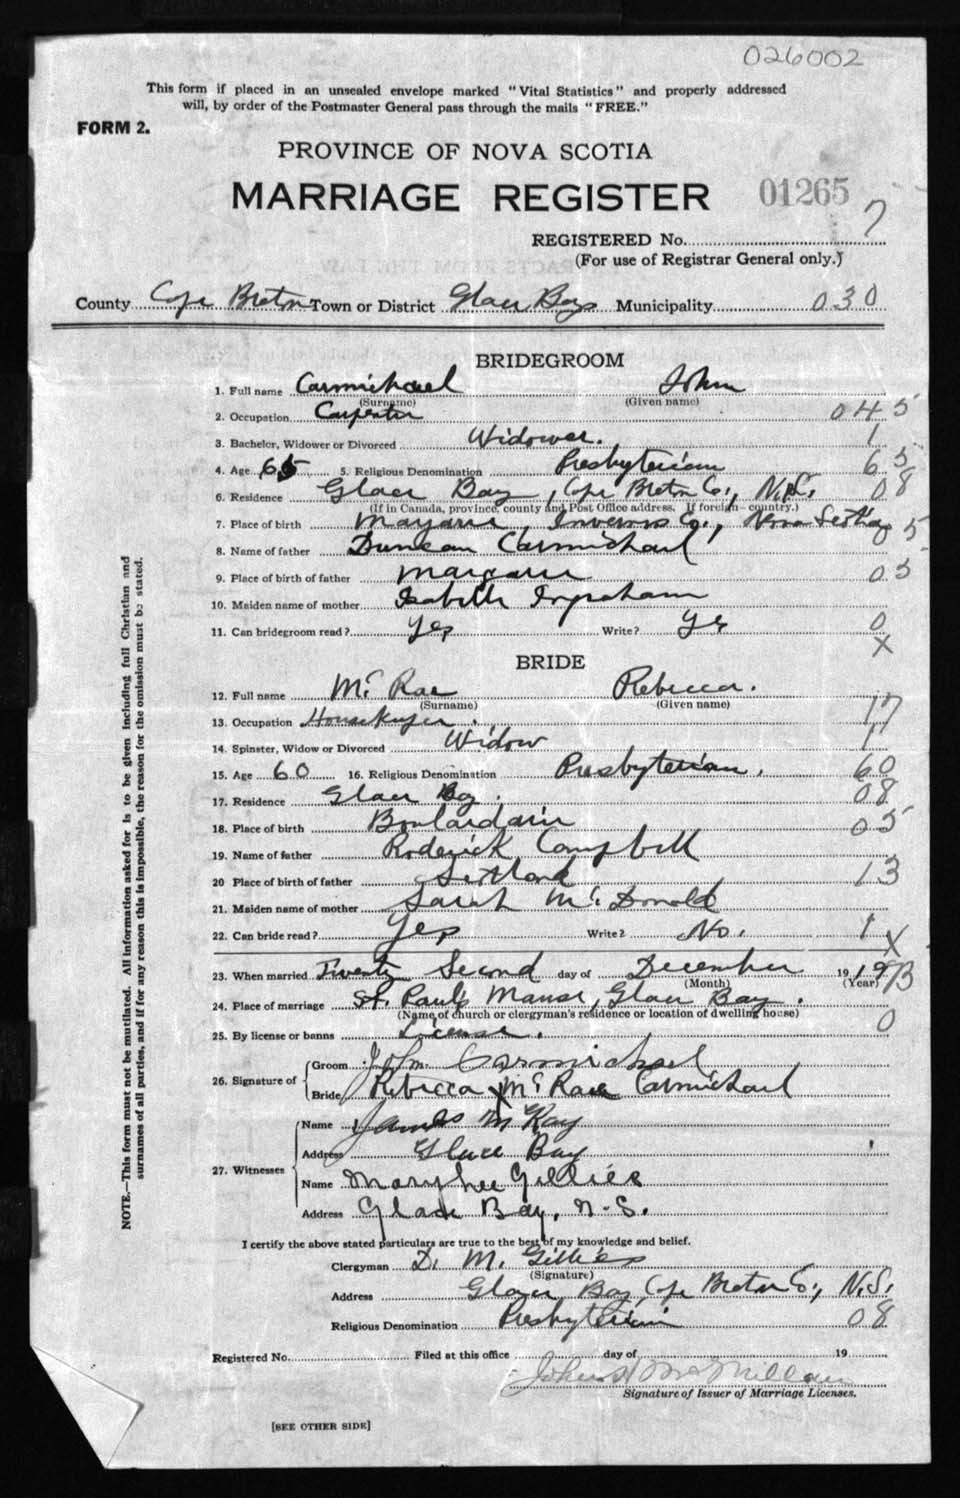 026002
This form if placed in an unsealed envelope marked "Vital Statistics" and properly addressed
will, by order of the Postmaster General pass through the mails "FREE."
FORM 2.
PROVINCE OF NOVA SCOTIA
MARRIAGE REGISTER 01265
REGISTERED No. 7
(For use of Registrar General only.)
County Cape Breton Town or District Glace Bay Municipality 030
BRIDEGROOM
1. Full name Carmichael John
(Surname) (Given name)
2. Occupation Carpenter 045
3. Bachelor, Widower or Divorced Widower. 1
4. Age 65 5. Religious Denomination Presbyterian 65
6. Residence Glace Bay, Cape Breton Co., N.S. 08
(If in Canada, province, county and Post Office address. If foreign—country.)
7. Place of birth Margaree, Inverness Co., Nova Scotia 05
8. Name of father Duncan Carmichael
9. Place of birth of father Margaree 05
10. Maiden name of mother Isabelle Ingraham
11. Can bridegroom read? Yes Write? Yes 0
X
BRIDE
12. Full name McRae Rebecca.
(Surname) (Given name)
13. Occupation Housekeeper. 17
14. Spinster, Widow or Divorced Widow 1
15. Age 60 16. Religious Denomination Presbyterian. 60
17. Residence Glace Bay. 08
18. Place of birth Boulardarie 05
19. Name of father Roderick Campbell
20 Place of birth of father Scotland 13
21. Maiden name of mother Sarah McDonald
22. Can bride read? Yes Write? No. 1 X
23. When married Twenty Second day of December 19 19
(Month) (Year)
24. Place of marriage St. Pauls Manse, Glace Bay.
(Name of church or clergyman's residence or location of dwelling house)
25. By license or banns License. 0
26. Signature of Groom John Carmichael
Bride Rebecca X McRae Carmichael
27. Witnesses
Name James McKay
Address Glace Bay
Name Mary Gillies
Address Glace Bay, N.S.
I certify the above stated particulars are true to the best of my knowledge and belief.
Clergyman D. M. Gillies
(Signature)
Address Glace Bay, Cape Breton Co., N.S.
Religious Denomination Presbyterian 08
Registered No. Filed at this office day of 19
John McMillan
Signature of Issuer of Marriage Licenses.
[SEE OTHER SIDE]
NOTE.—This form must not be mutilated. All information asked for is to be given including full Christian and
surnames of all parties, and if for any reason this is impossible, the reason for the omission must be stated.